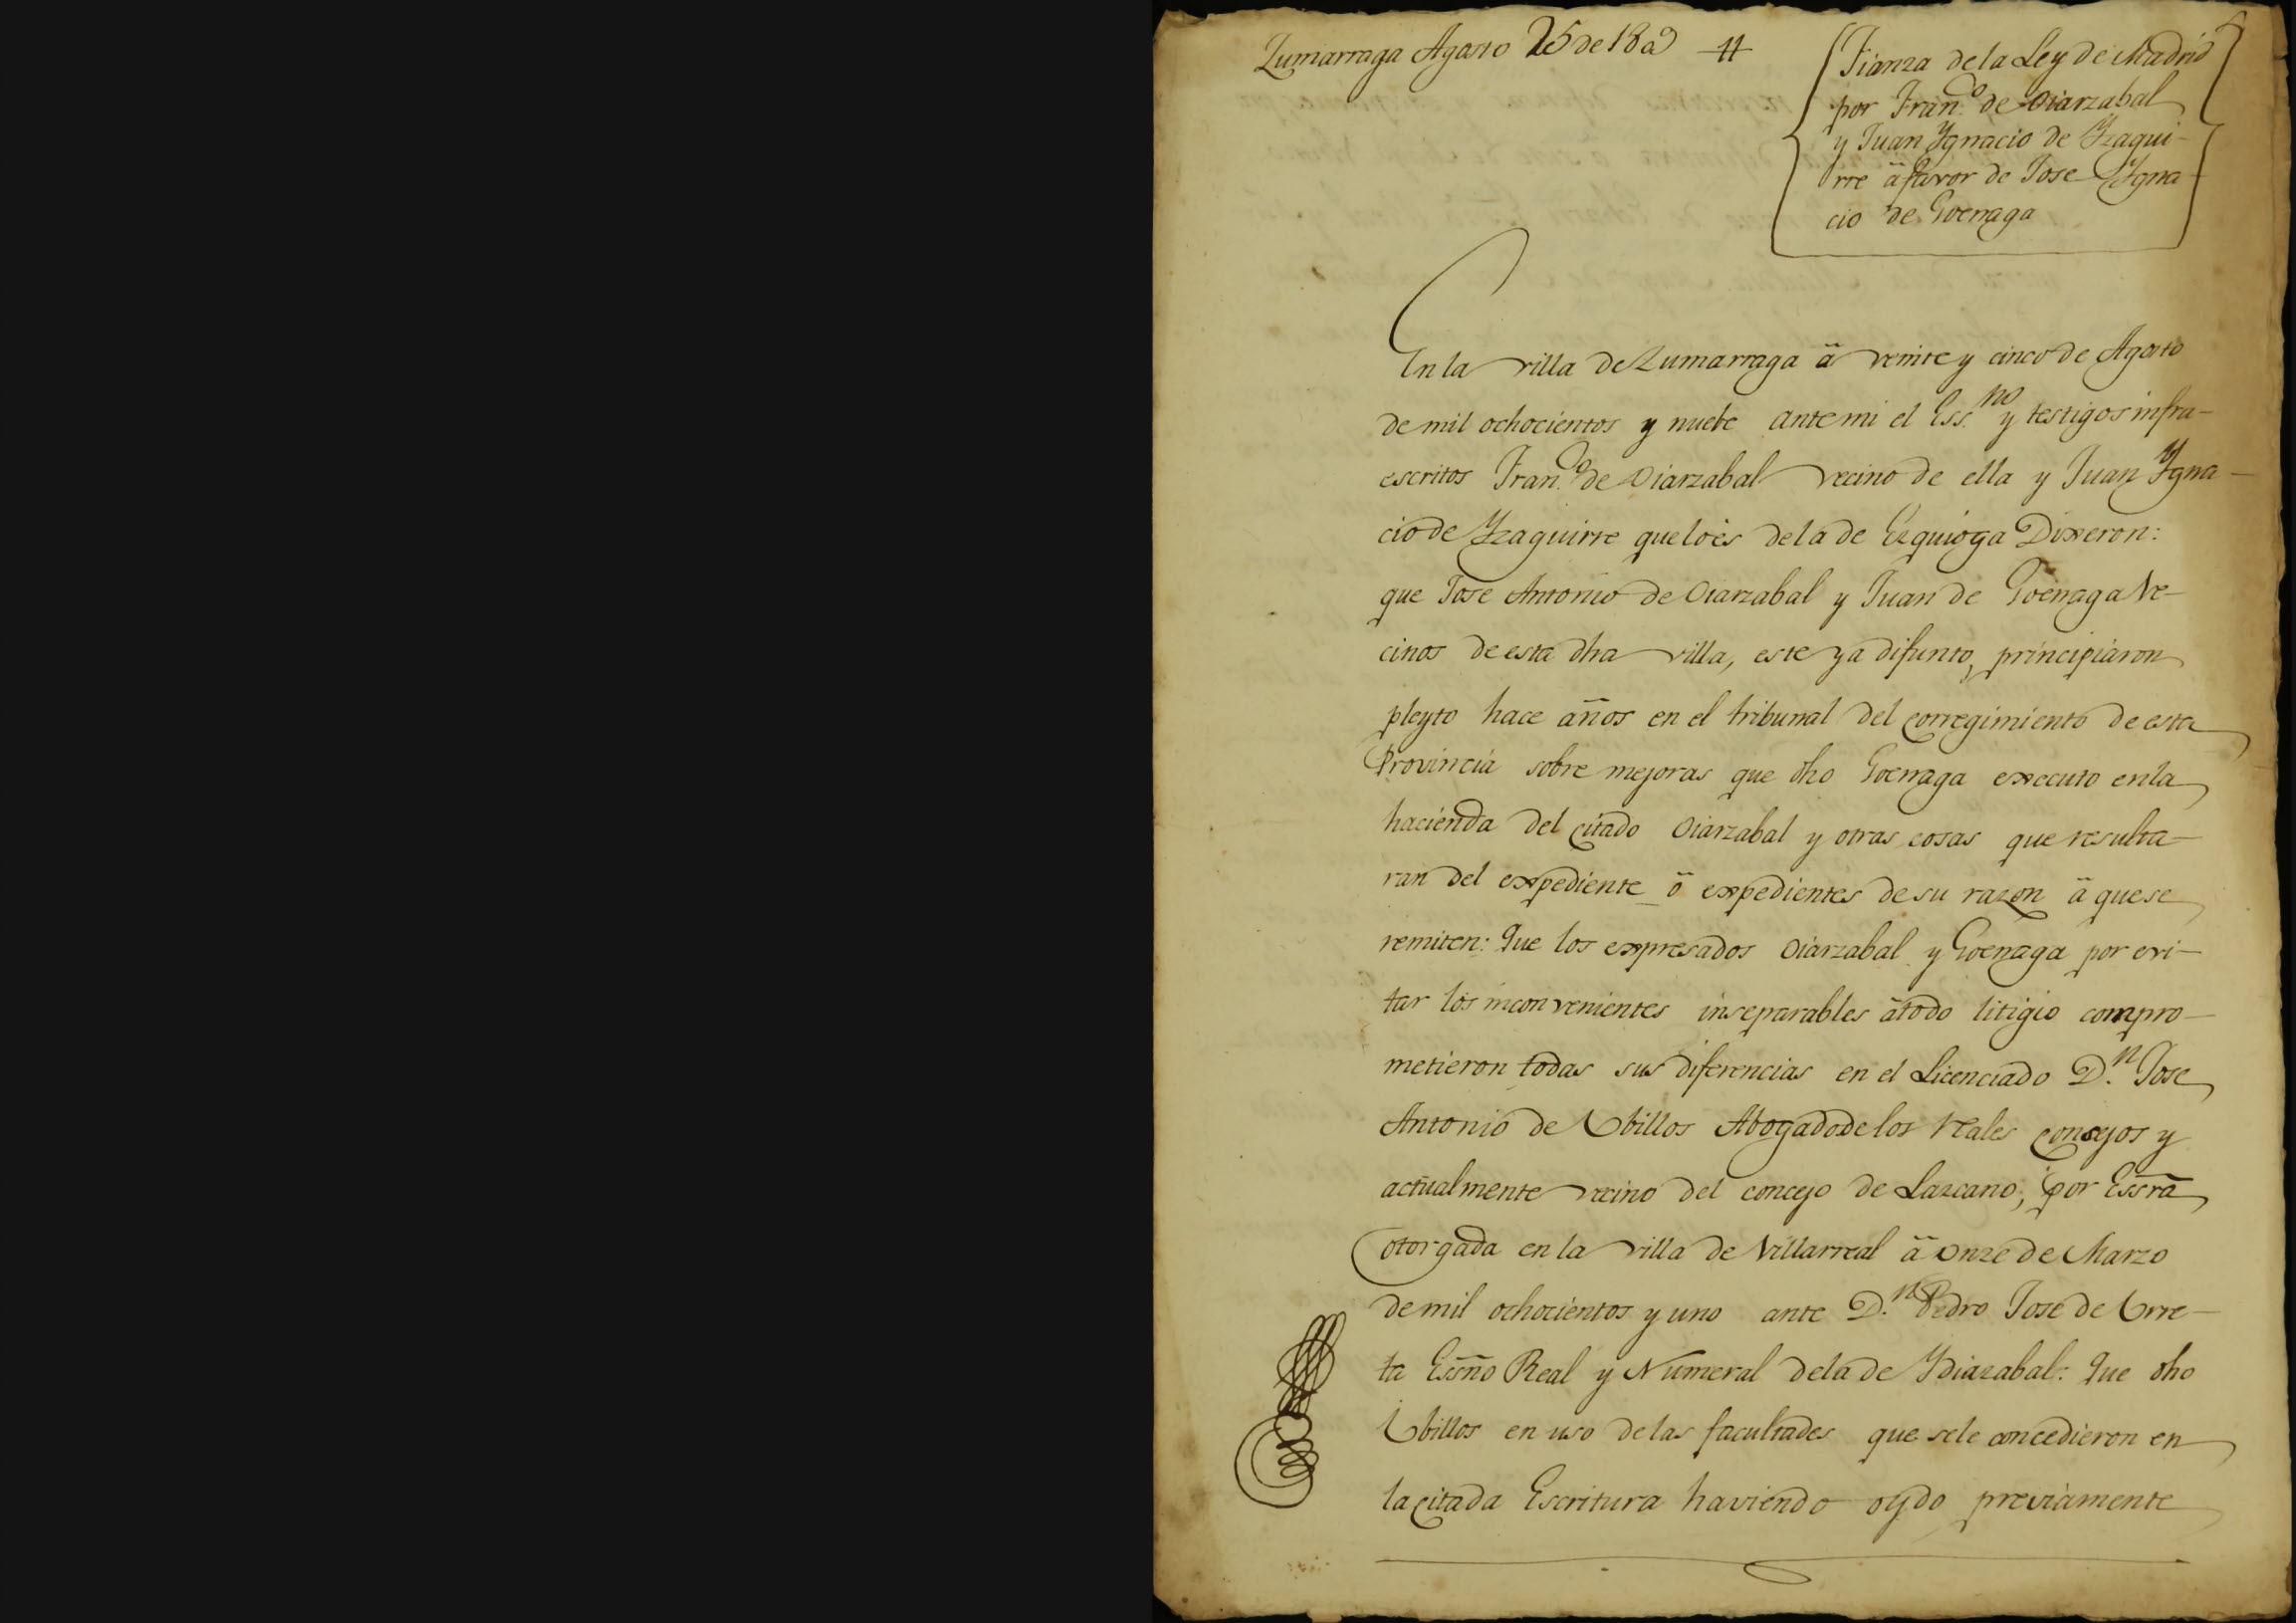 Zumarraga Agosto 25 de 1809 #
Fianza de la Ley de Madrid
por Fran.co de Oiarzabal
y Juan Ygnacio de Yzagui-
rre â favor de Jose Ygna-
cio de Goenaga
En la villa de Zumarraga â veinte y cinco de Agosto
de mil ochocientos y nuebe ante mi el Ess.no y testigos infra-
escritos Fran.co de Oiarzabal vecino de ella y Juan Ygna-
cio de Yzaguirre que lo es de la de Ezquioga Dixeron:
que Jose Antonio de Oiarzabal y Juan de Goenaga Ve-
cinos de esta dha villa, este ya difunto, principiaron
pleyto hace años en el tribunal del corregimiento de esta
Provincia sobre mejoras que dho Goenaga executo en la
hacienda del citado Oiarzabal y otras cosas que resulta-
ran del expediente ô expedientes de su razon â que se
remiten: Que los expresados Oiarzabal y Goenaga por evi-
tar los inconvenientes inseparables â todo litigio compro-
metieron todas sus diferencias en el Licenciado D.n Jose
Antonio de Ubillos Abogado de los Rales consejos y
actualmente vecino del concejo de Lazcano, por Essra
otorgada en la villa de Villarreal â onze de Marzo
de mil ochocientos y uno ante D.n Pedro Jose de Urre-
ta Essno Real y Numeral de la de Ydiazabal: Que dho
Ubillos en uso de las facultades que se le concedieron en
la citada Escritura haviendo oydo previamente